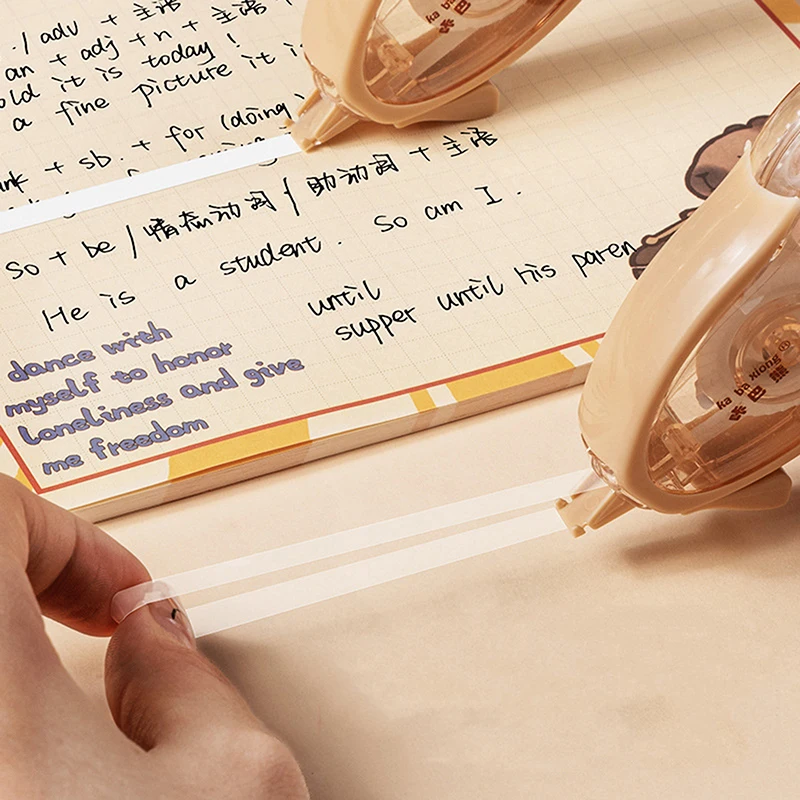 ./ adv + 主语
an + adj + n + 主语 +
old it is today!
a fine picture it is
nk + sb. + for (doing)
So + be / 情态动词 / 助动词 + 主语
He is a student. So am I.
until
supper until his paren
dance with
myself to honor
loneliness and give
me freedom